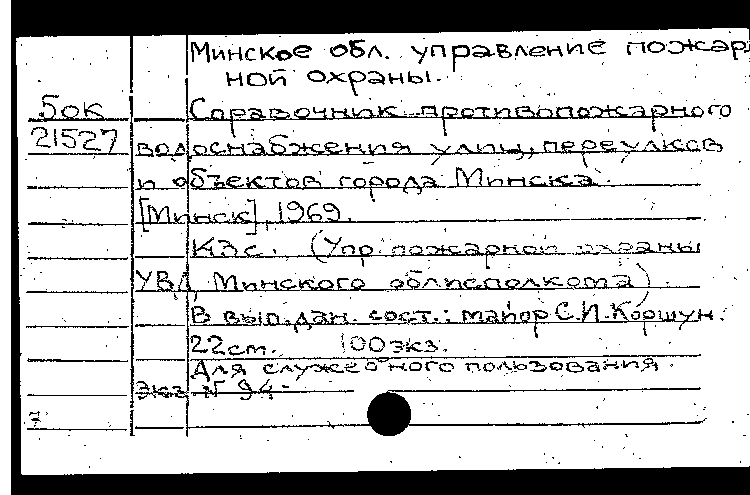 Минское обл. управление пожар
ной охраны.
Бок Справочник противопожарного
21527 водоснабжения улиц, переулков
и объектов города Минска.
[Минск], 1969.
(Упр. пожарной охраны
УВД Минского облисполкома)
В вып. дан. сост.: майор С.И. Коршун.
22см. 100 экз.
Для служебного пользования.
Экз № 94